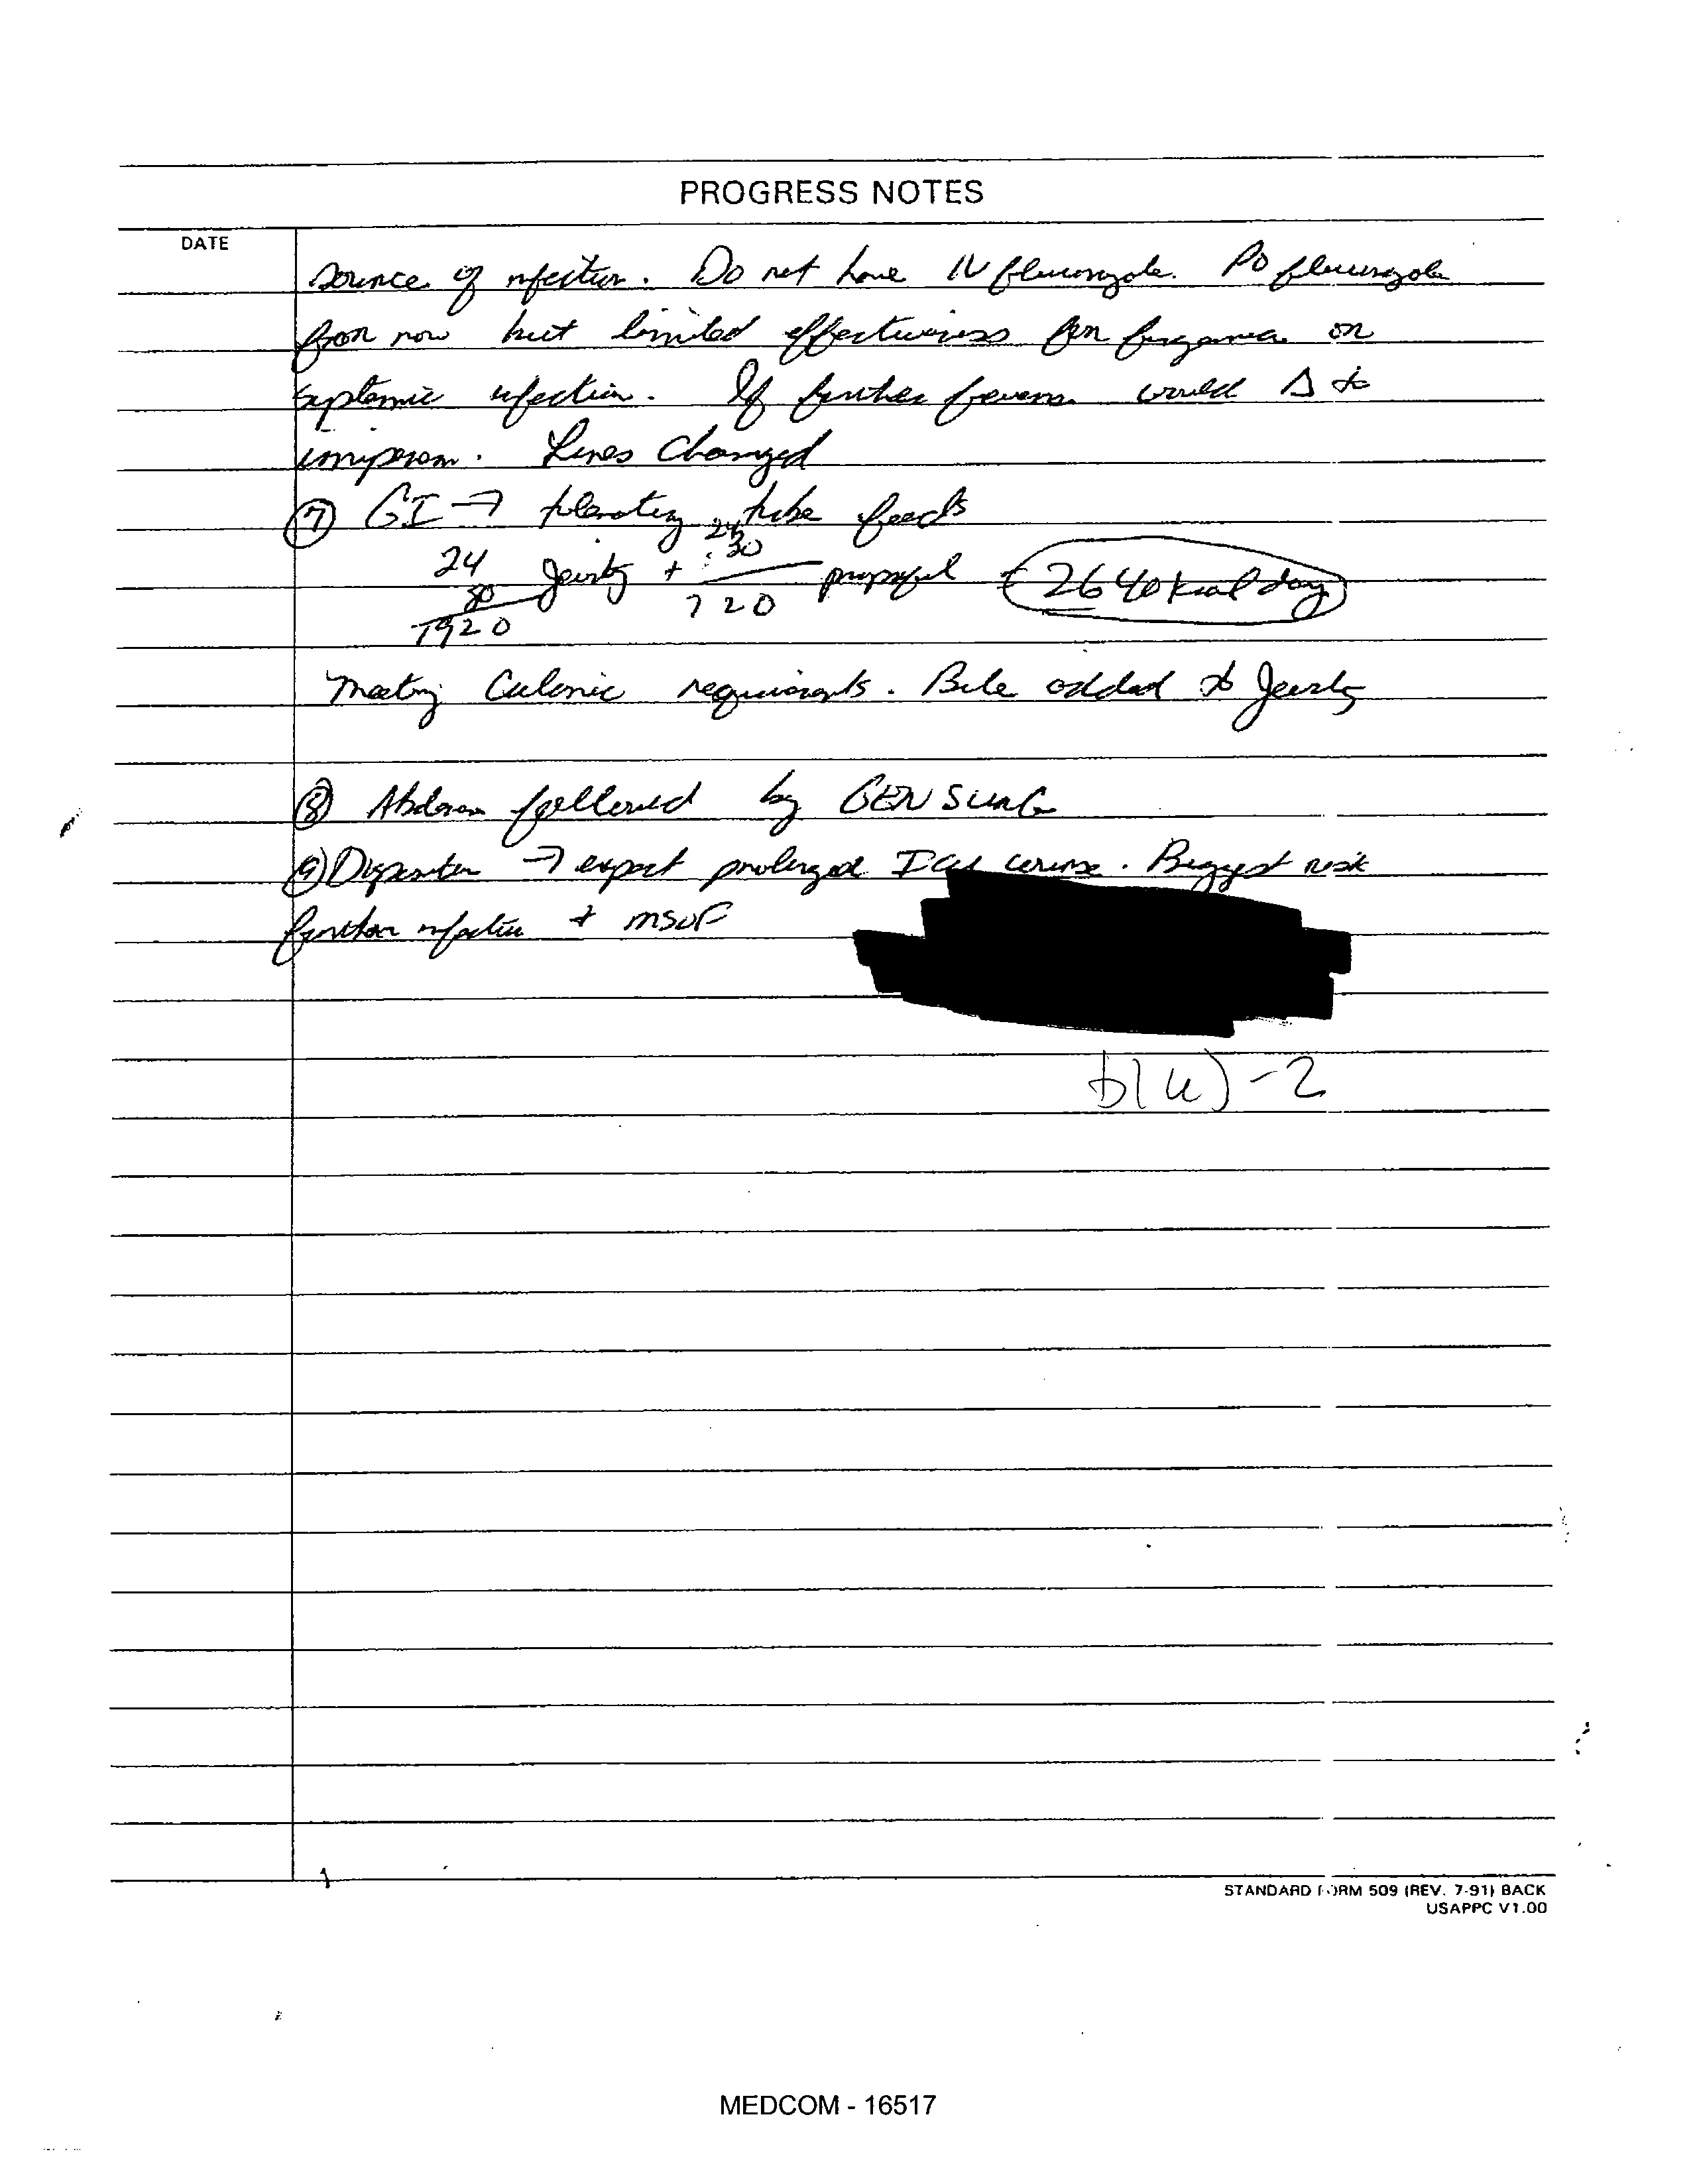 PROGRESS NOTES
DATE
source of infection. Do not have IV fluconazole. PO fluconazole
for now but limited effectiveness for fungemia or
systemic infection. If further fevers would Δ to
imipenem. Lines Changed
⑦ GI → tolerating tube feeds
24 24
80 Jevity + 30 propofol = 2640 kcal day
1920 720
Meeting Caloric requirements. Bile added to Jevity
⑧ Abdomen followed by GEN SURG
⑨ Disposition → expect prolonged ICU course. Biggest risk
further infection + MSOF
b(6)-2
STANDARD FORM 509 (REV. 7-91) BACK
USAPPC V1.00
MEDCOM - 16517